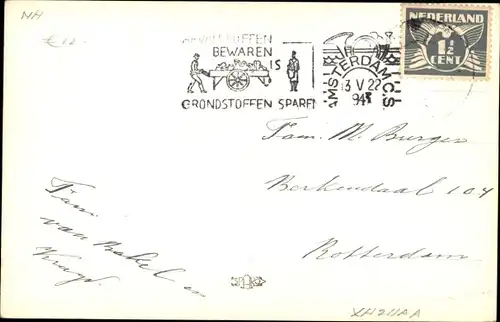 NH
€12.-
AFVALSTOFFEN
BEWAREN
IS
GRONDSTOFFEN SPAREN
AMSTERDAM C.S.
13 V 22
194
NEDERLAND
1½
CENT
Fam. M. Burger
Berkendaal 104
Rotterdam
Fam.
van Bakel en
XH211AA